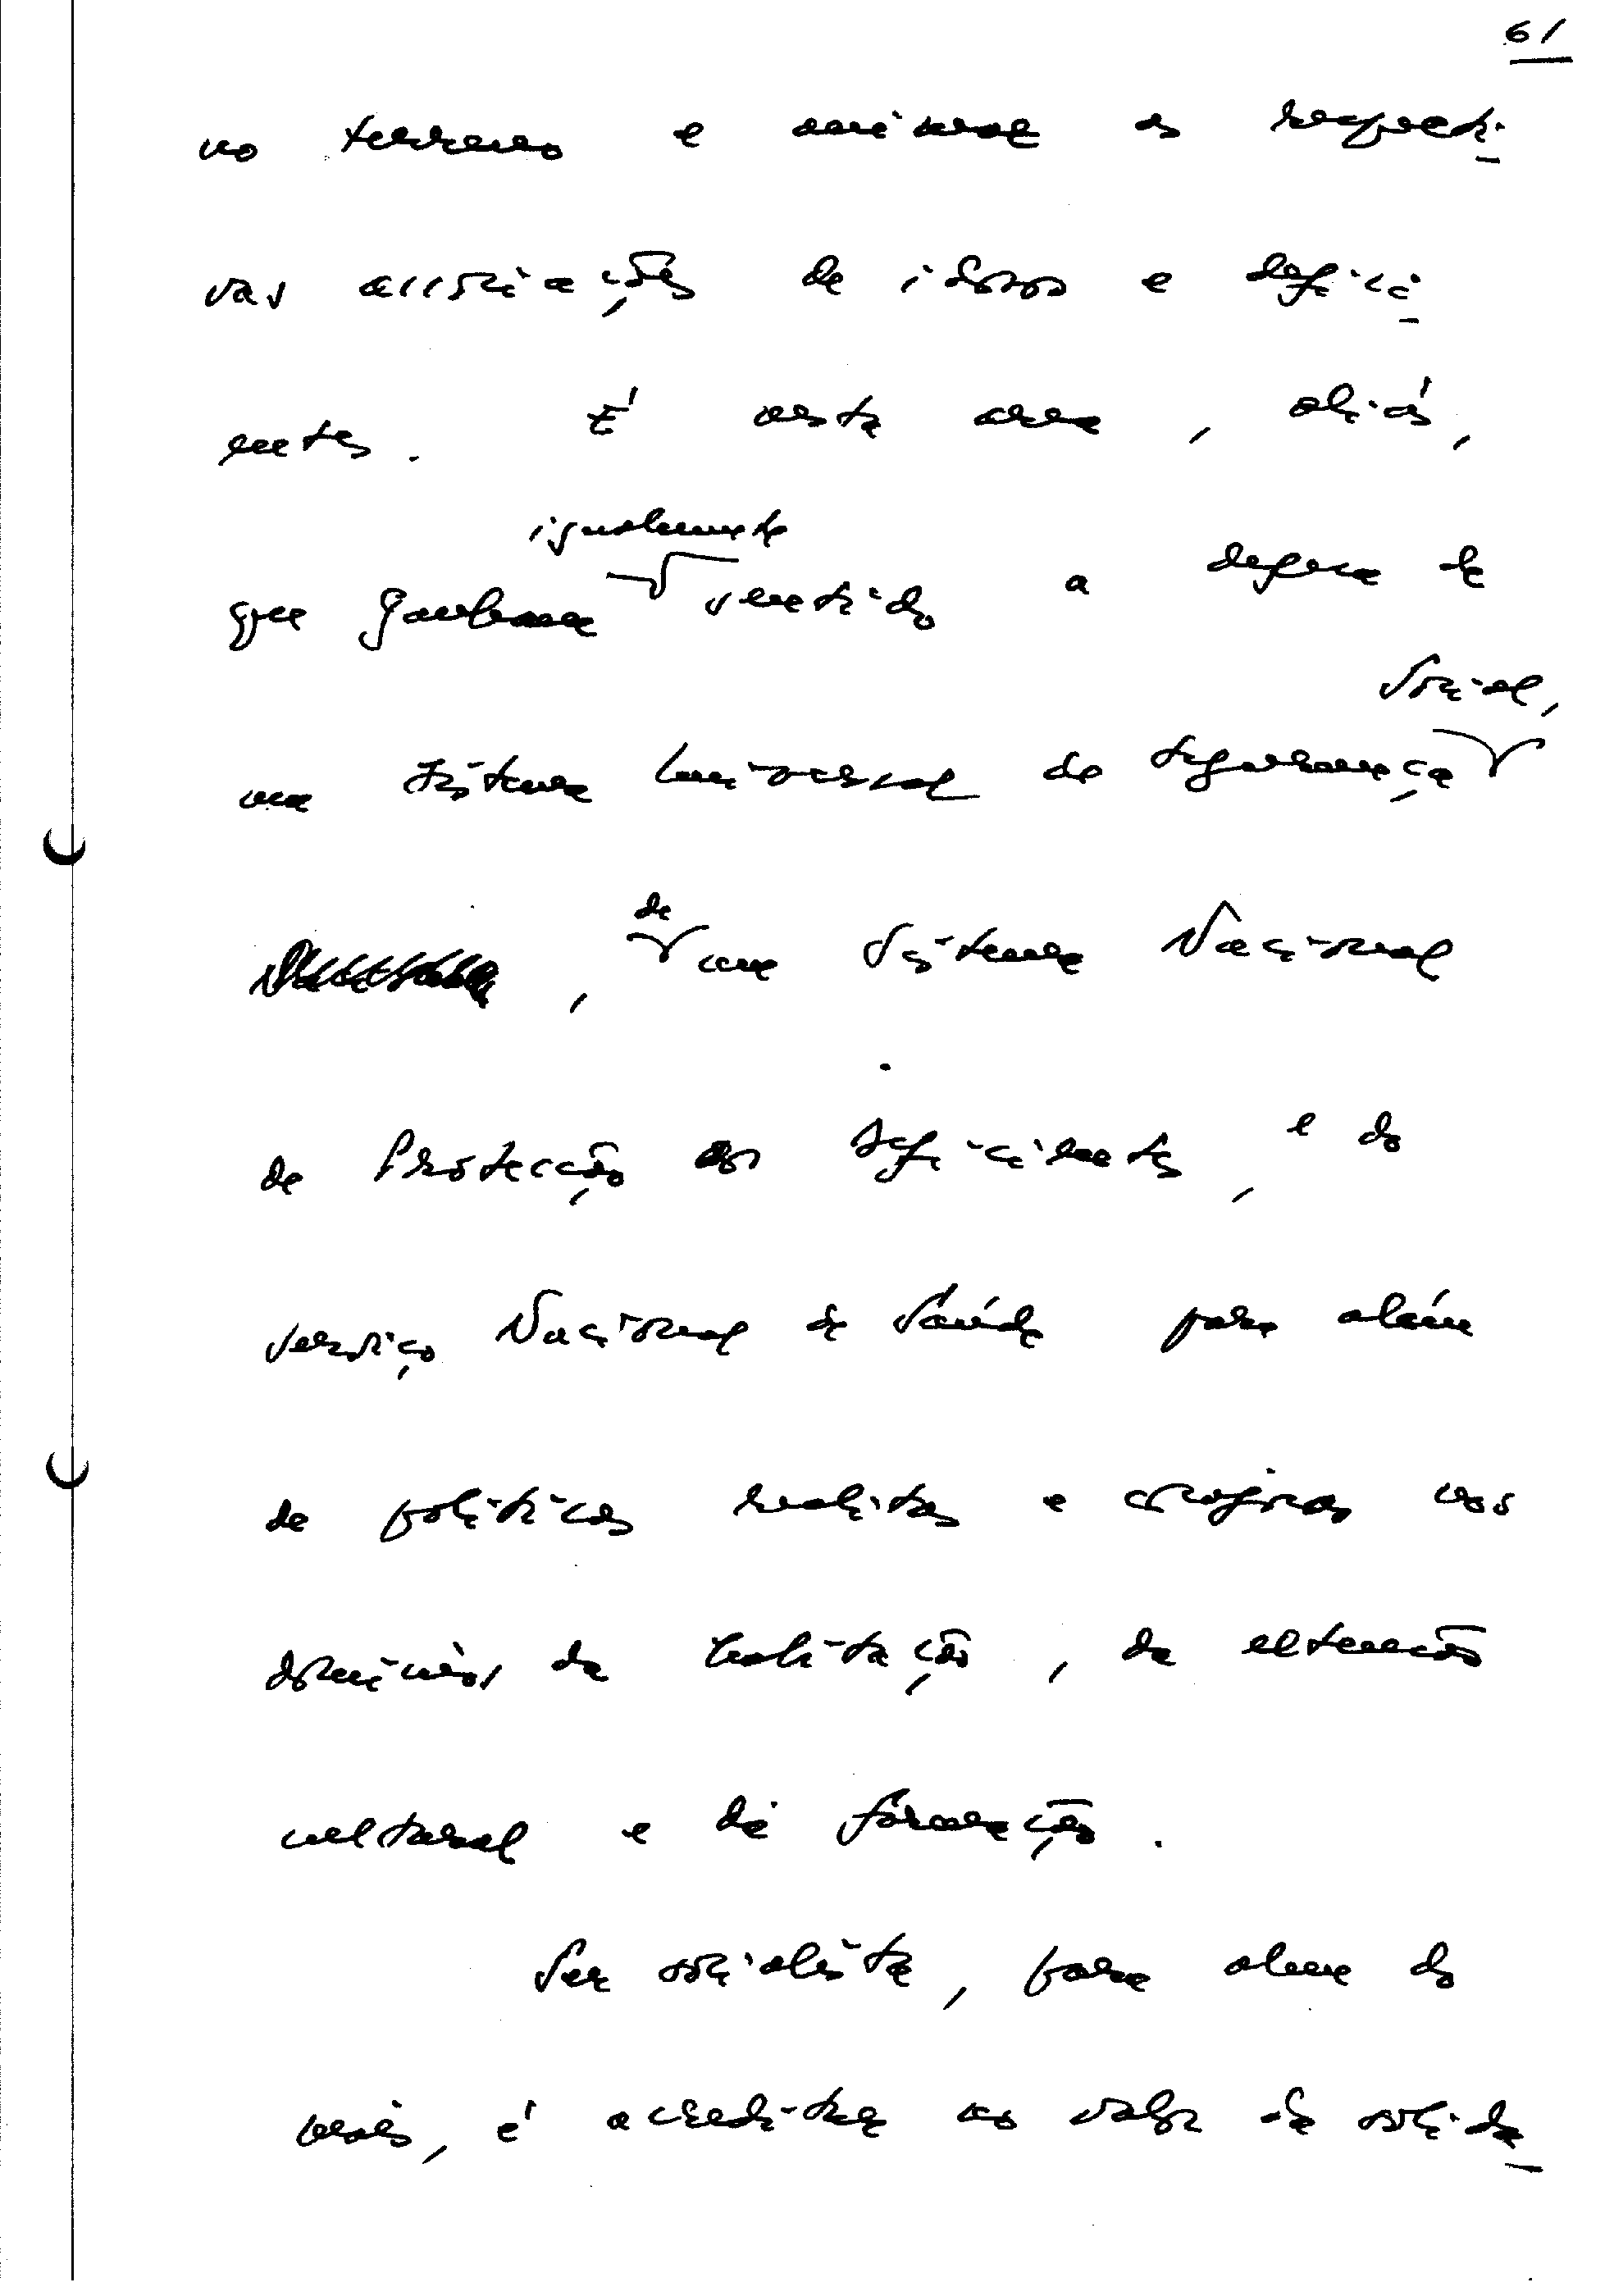 61
no terreno e animar as respecti-
vas associações de idosos e defici-
entes. É nesta area, aliás,
igualmente
que ganham sentido a defesa de
Social,
um sistema Universal de Segurança
, de um Sistema Nacional
de Protecção aos deficientes, e do
Serviço Nacional de Saúde para além
de políticas realistas e corajosas nos
domínios da habitação, da
cultural e de formação.
Ser socialista, para alem do
mais, é acreditar no valor da solida-